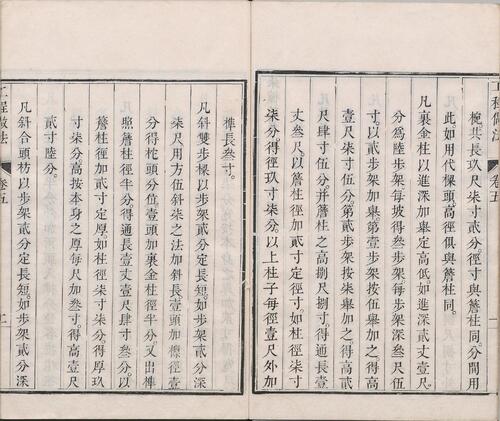 工程做法
卷五
一
椀共長玖尺叄寸貳分徑寸與簷柱同。分間用
此如用代樑頭高徑俱與簷柱同。
凡裏金柱以進深加舉定高低如進深貳丈壹尺
分爲陸步架每坡得叄步架每步架深叄尺伍
寸。以貳步架加舉第壹步架按伍舉加之。得高
壹尺柒寸伍分。第貳步架按柒舉加之。得高貳
尺肆寸伍分。并簷柱之高捌尺捌寸。得通長壹
丈叄尺。以簷柱徑加貳寸定徑寸。如柱徑柒寸
柒分得徑玖寸柒分。以上柱子每徑壹尺外加
榫長叄寸。
凡斜雙步樑以步架貳分定長短。如步架貳分深
柒尺用方伍斜柒之法加斜長壹頭加檁徑壹
分得柁頭分位。壹頭加裏金柱徑半分。又出榫
照簷柱徑半分得通長壹丈壹尺肆寸叄分。以
簷柱徑加貳寸定厚。如柱徑柒寸柒分得厚玖
寸柒分高按本身之厚每尺加叄寸。得高壹尺
貳寸陸分。
凡斜合頭枋以步架貳分定長短。如步架貳分深
工程做法
卷五
二